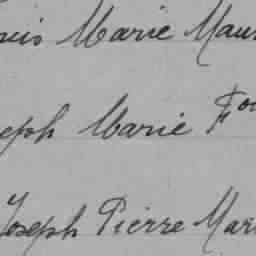 ouis Marie Mau
eph Marie Fo
Joseph Pierre Mar